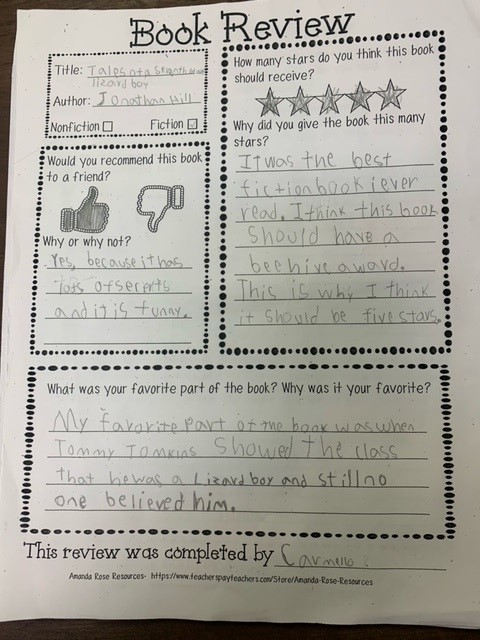 Book Review
Title: Tales of a Seventh Grade
lizard boy
Author: Jonathan Hill
Nonfiction Fiction
Would you recommend this book
to a friend?
Why or why not?
Yes, because it has
lots of secerts
and it is funny.
How many stars do you think this book
should receive?
Why did you give the book this many
stars?
It was the best
fiction book i ever
read. I think this book
should have a
beehive award.
This is why I think
it should be five stars.
What was your favorite part of the book? Why was it your favorite?
My favorite part of the book was when
Tommy Tomkins showed the class
that he was a Lizard boy and still no
one believed him.
This review was completed by Carmello.
Amanda Rose Resources- https://www.teacherspayteachers.com/Store/Amanda-Rose-Resources